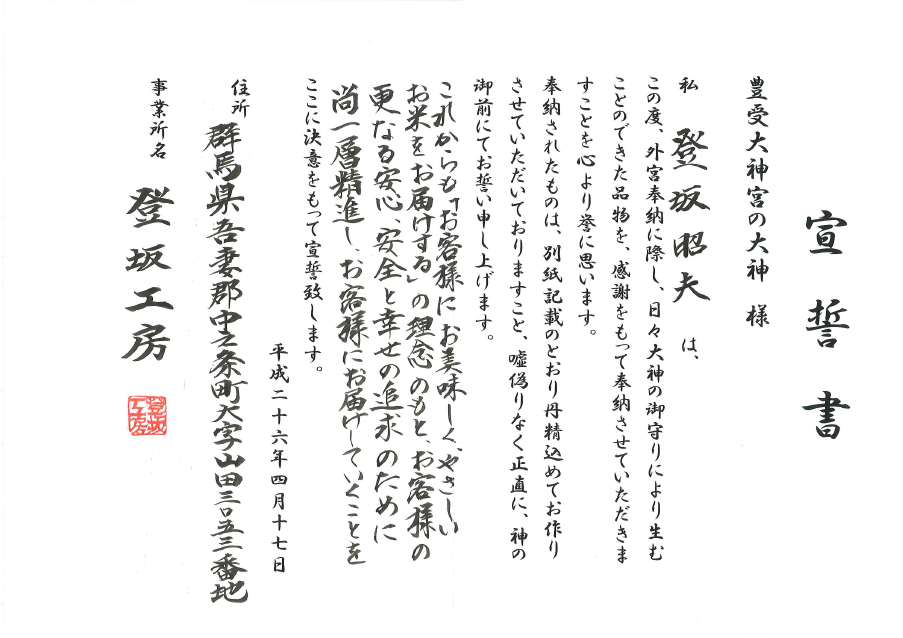 宣誓書
豊受大神宮の大神 様
私 登坂昭夫 は、
この度、外宮奉納に際し、日々大神の御守りにより生む
ことのできた品物を、感謝をもって奉納させていただきま
すことを心より誉に思います。
奉納されたものは、別紙記載のとおり丹精込めてお作り
させていただいておりますこと、嘘偽りなく正直に、神の
御前にてお誓い申し上げます。
これからも「お客様にお美味しく、やさしい
お米をお届けする」の理念のもと、お客様の
更なる安心、安全と幸せの追求のために
尚一層精進し、お客様にお届けしていくことを
ここに決意をもって宣誓致します。
平成二十六年四月十七日
住所 群馬県吾妻郡中之条町大字山田三〇五三番地
事業所名 登坂工房
登坂工房